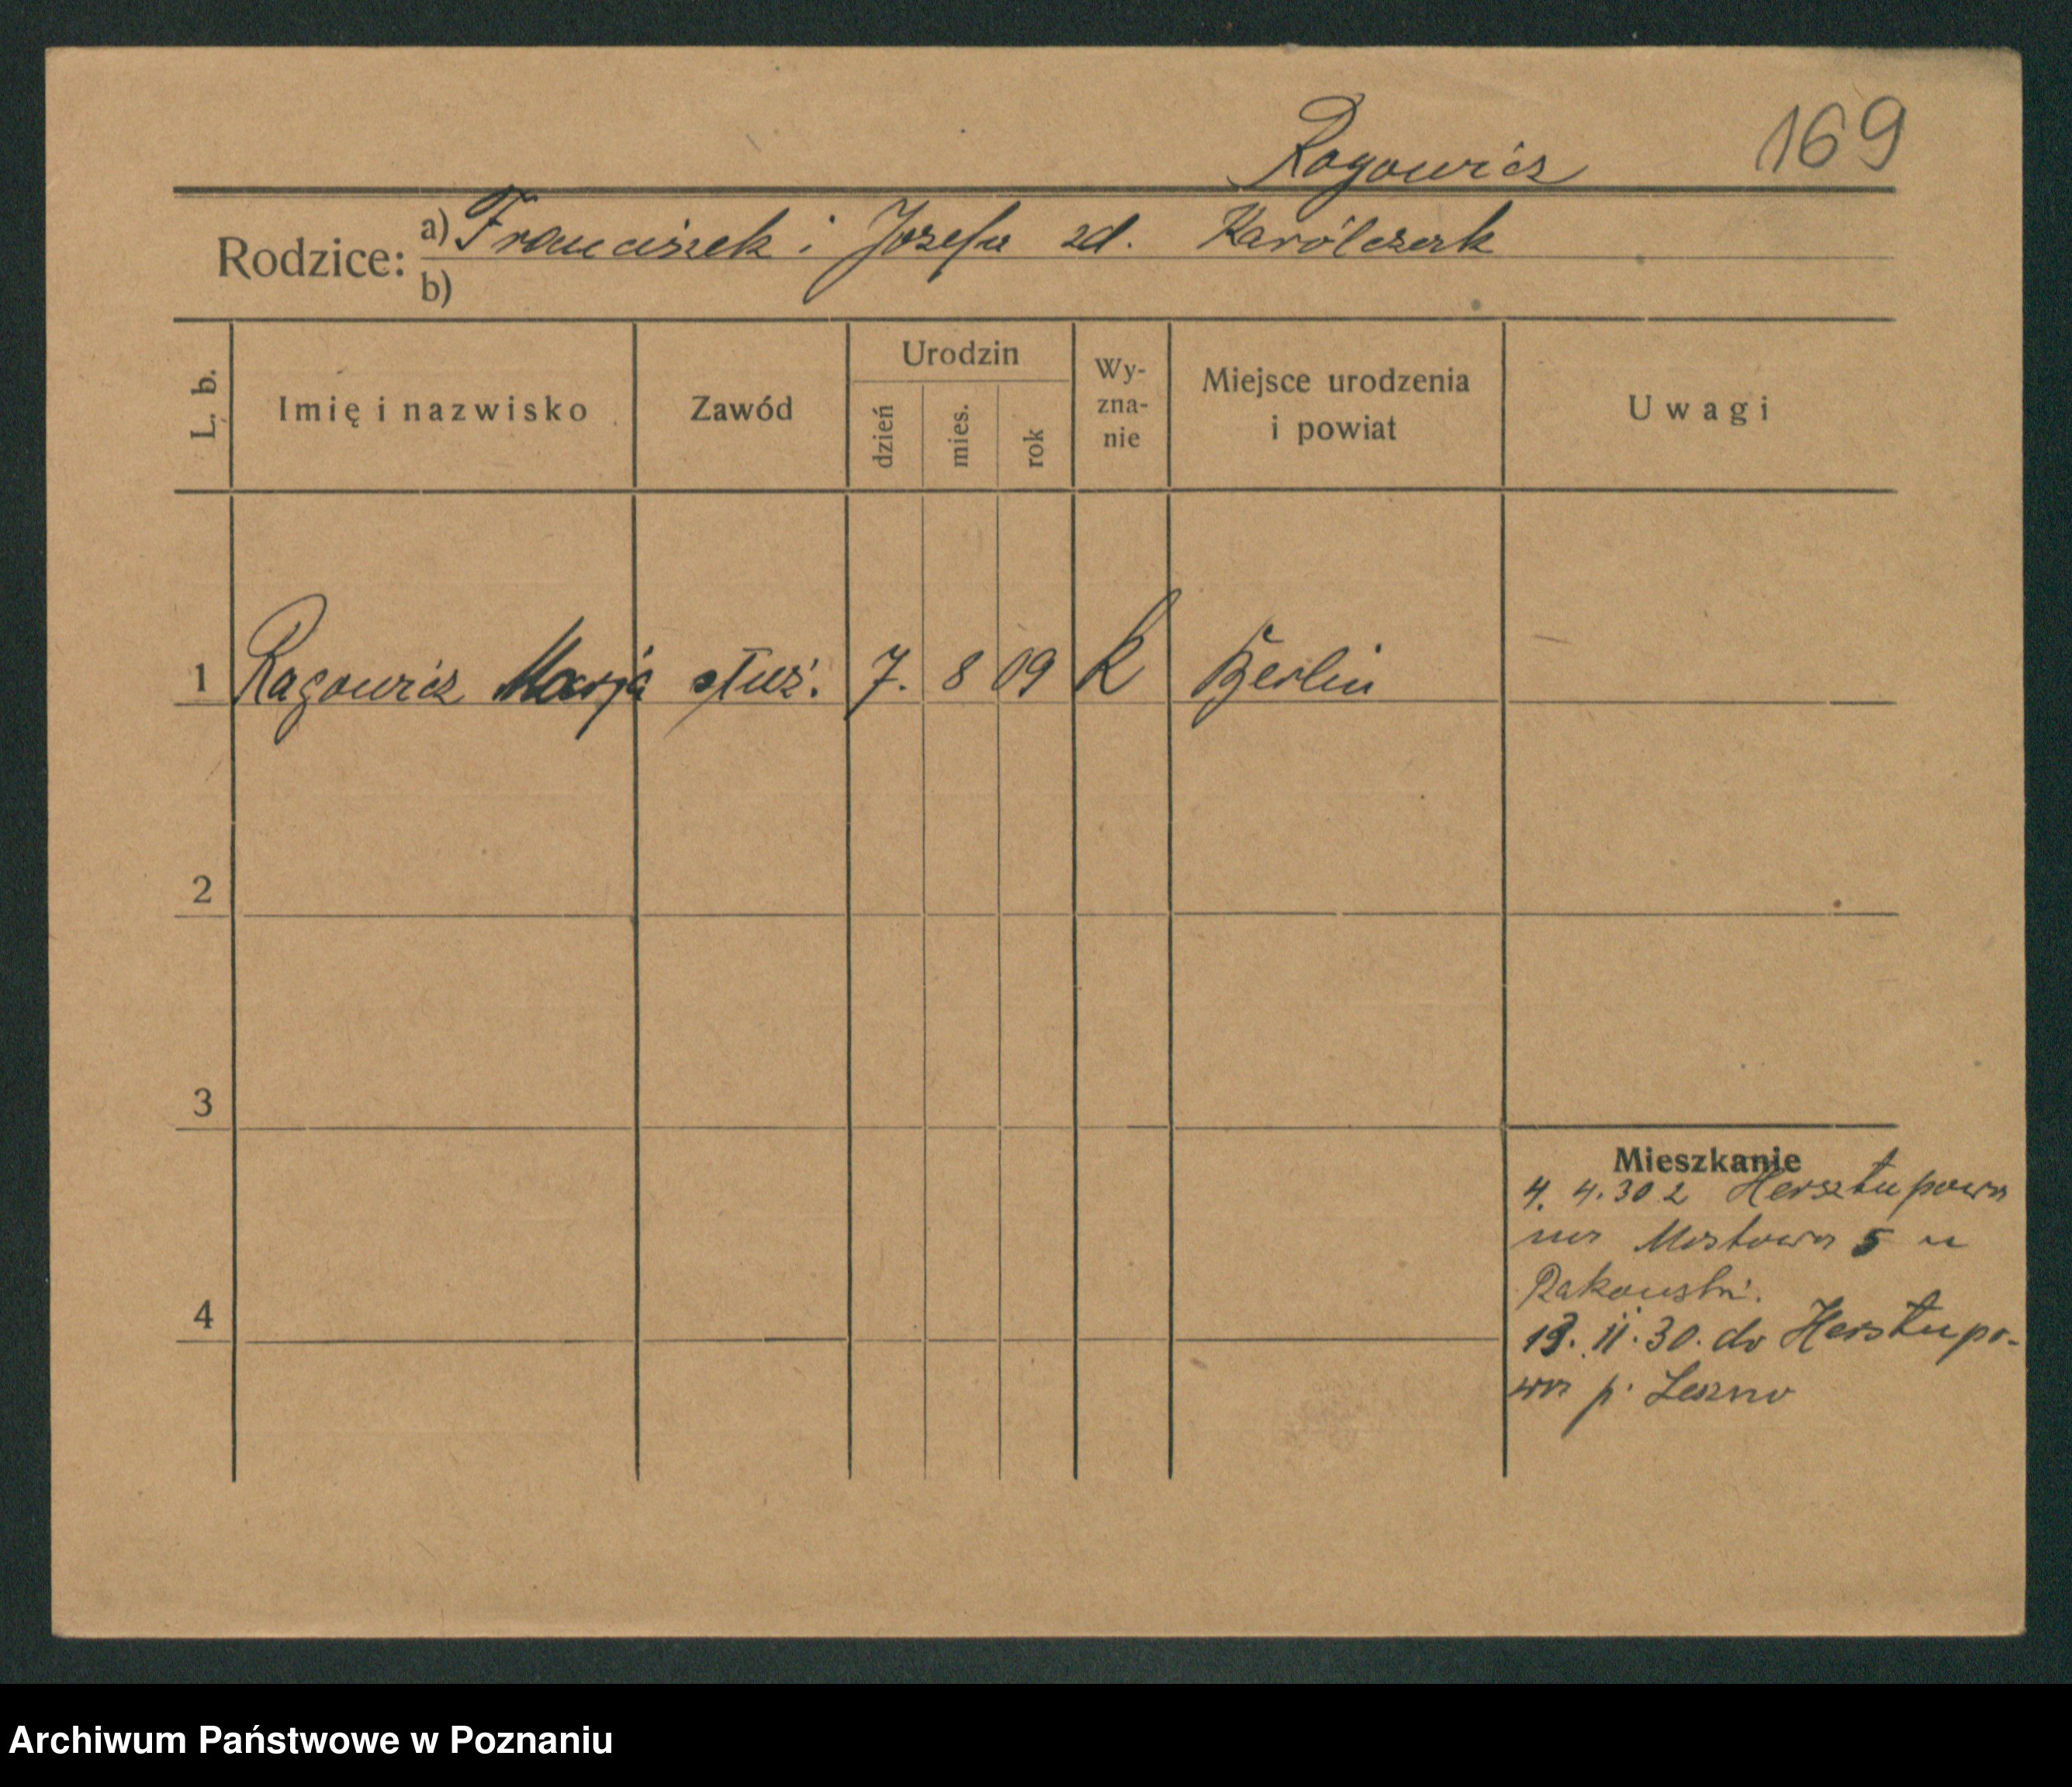 Rogowicz 169
Rodzice: a) Franciszek i Józefa zd. Karólczak
b)
L. b. Imię i nazwisko Zawód Urodzin dzień mies. rok Wy-zna-nie Miejsce urodzenia i powiat Uwagi
1 Ragowicz Marja służ. 7. 8 09 k Berlin
2
3
Mieszkanie
4. 4. 30 z Hersztupowa
na Mostowa 5 u
Rakowski.
4
13. 11. 30. do Herstupo-
wa p. Leszno
Archiwum Państwowe w Poznaniu